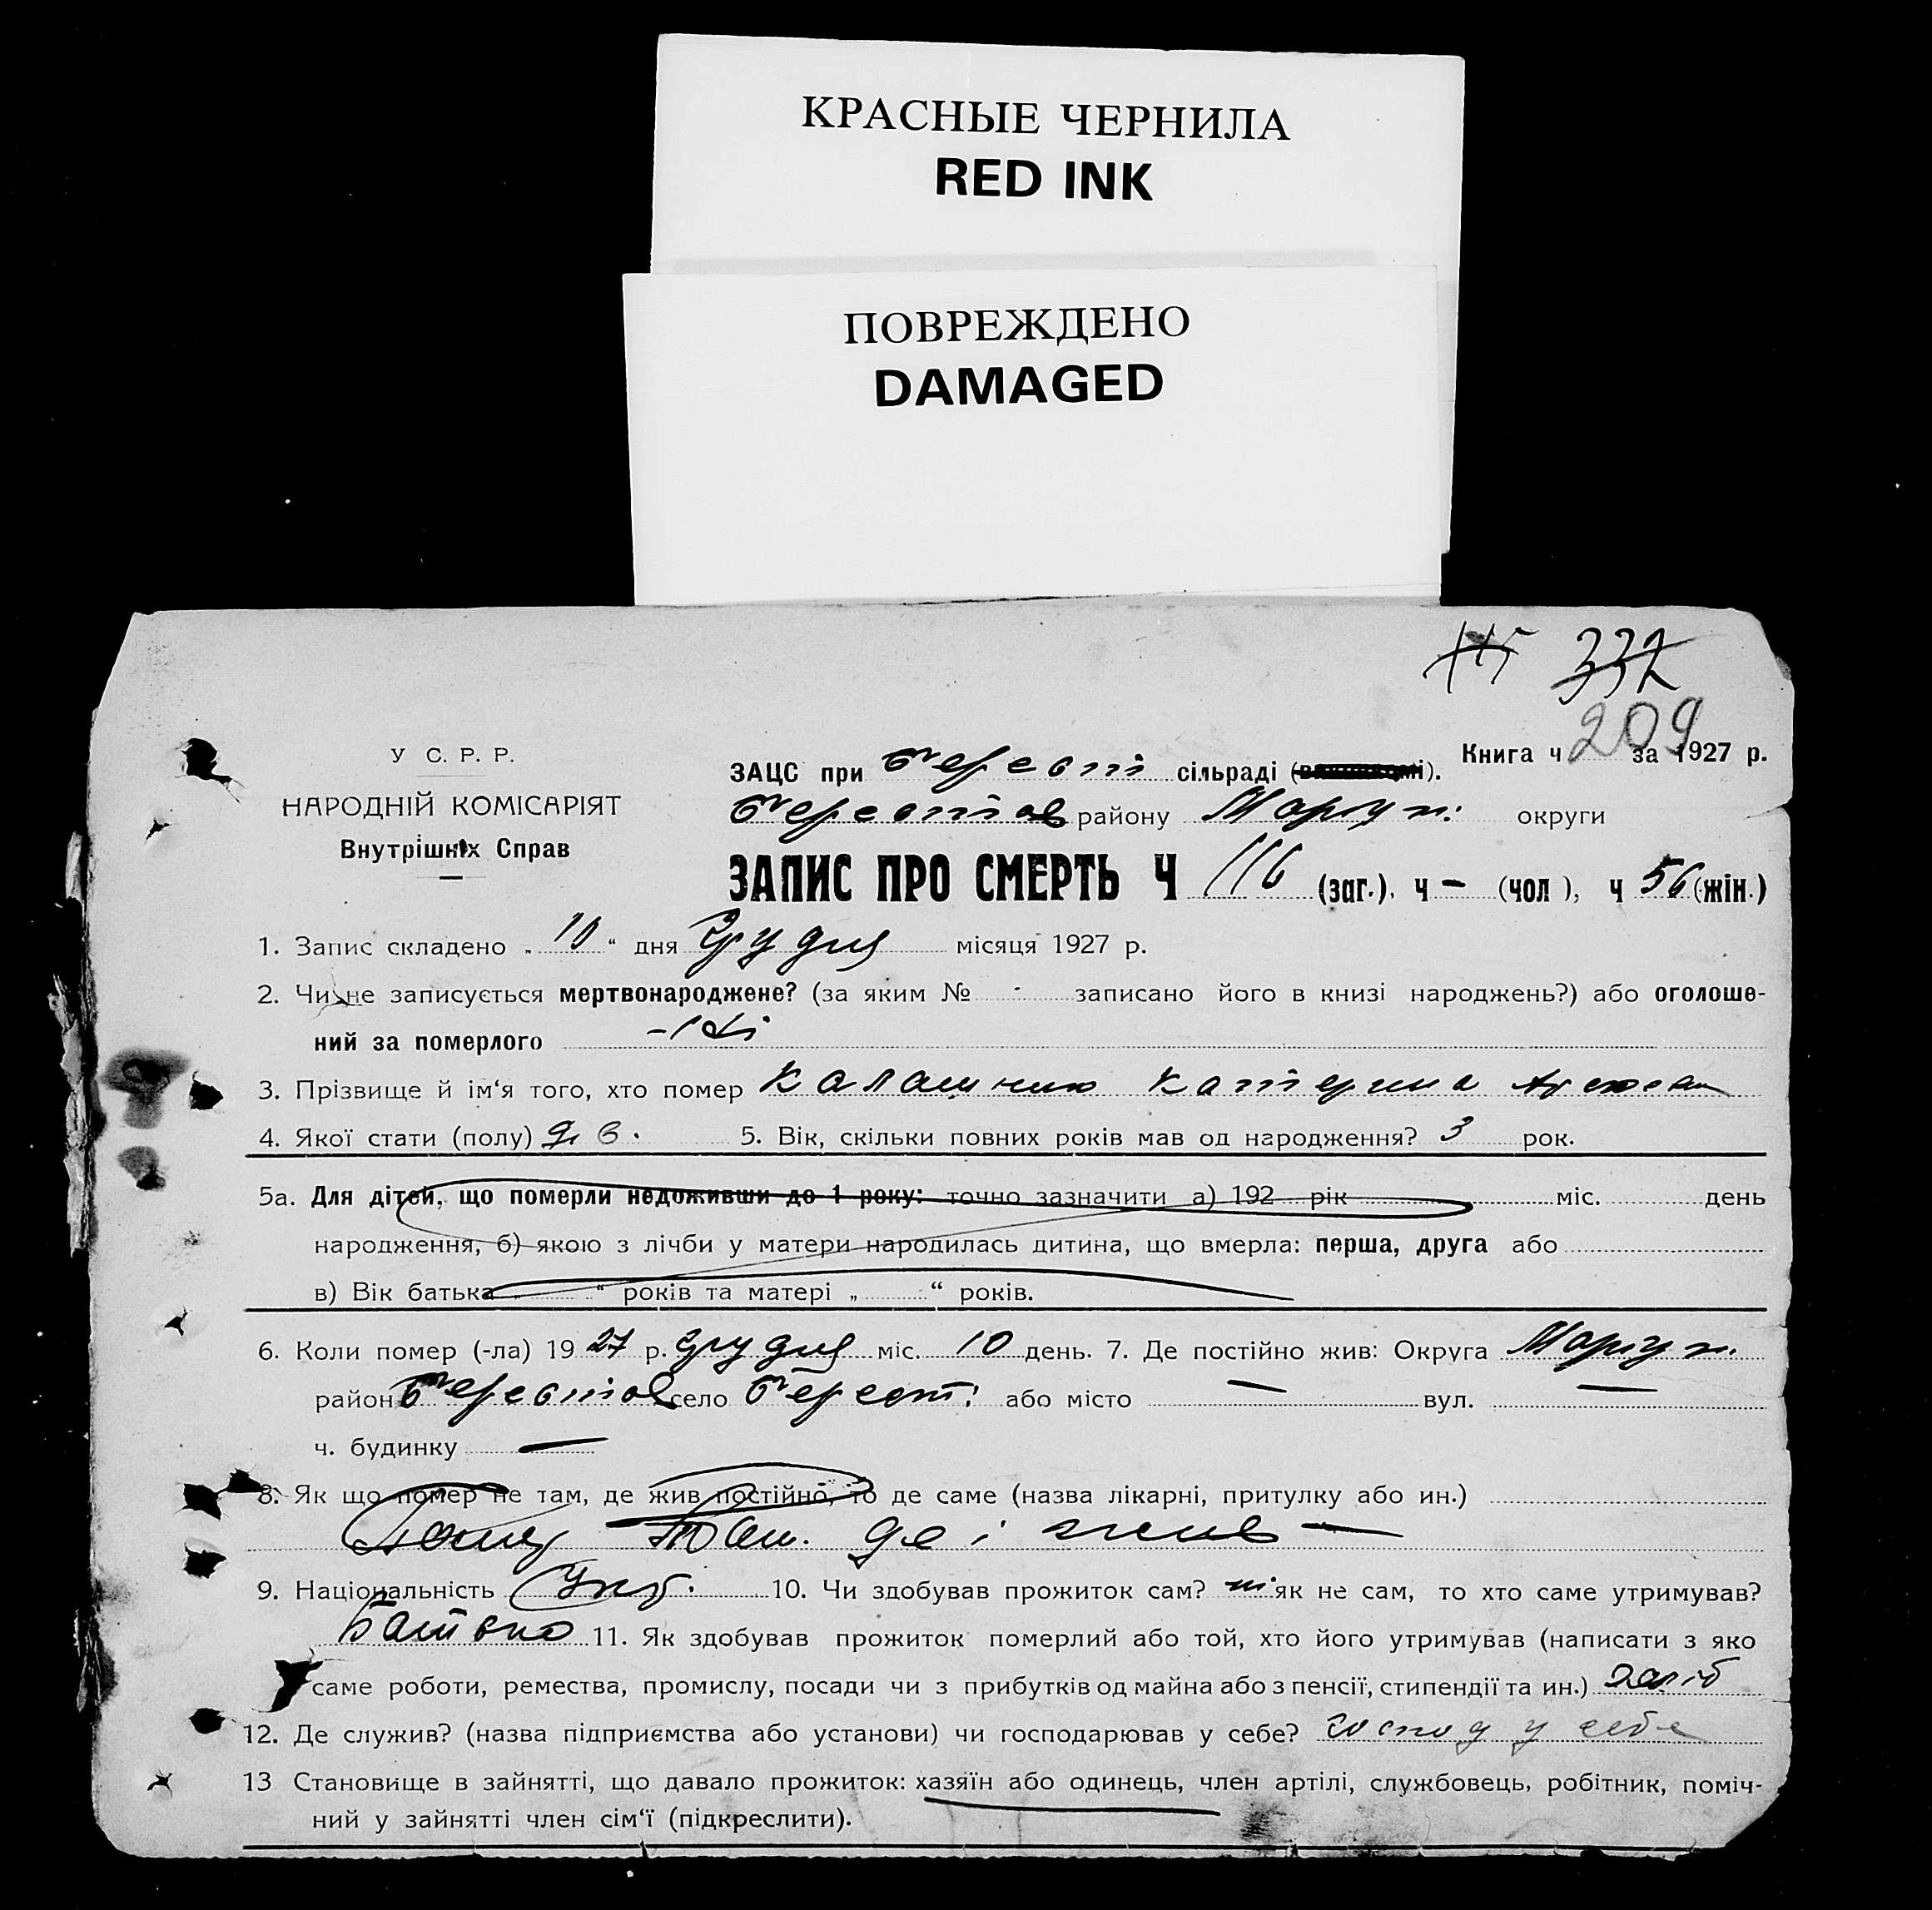 КРАСНЫЕ ЧЕРНИЛА
RED INK
ПОВРЕЖДЕНО
DAMAGED
115 332
209
У С. Р. Р.
НАРОДНІЙ КОМІСАРІЯТ
Внутрішніх Справ
Книга ч за 1927 р.
ЗАЦС при Берест сільраді
Берестов району Маріуп: округи
ЗАПИС ПРО СМЕРТЬ Ч 116 (заг.), ч – (чол), ч 56 (жін.)
1. Запис складено „ 10 “ дня Грудня місяця 1927 р.
2. Чи не записується мертвонароджене? (за яким № - записано його в книзі народжень?) або оголоше-
ний за померлого
3. Прізвище й ім‘я того, хто помер Калашник Катерина
4. Якої стати (полу) дів. 5. Вік, скільки повних років мав од народження? 3 рок.
5а. Для дітей, що померли недоживши до 1 року: точно зазначити а) 192 рік міс. день
народження, б) якою з лічби у матери народилась дитина, що вмерла: перша, друга або
в) Вік батька „ “ років та матері „ “ років.
6. Коли помер (-ла) 19 27 р. грудня міс. 10 день. 7. Де постійно жив: Округа Маріуп.
район Берестов село Берест: або місто — вул. —
ч. будинку —
8. Як що помер не там, де жив постійно, то де саме (назва лікарні, притулку або ин.)
там. де і жив —
9. Національність Укр. 10. Чи здобував прожиток сам? ні як не сам, то хто саме утримував?
Батько 11. Як здобував прожиток померлий або той, хто його утримував (написати з яко
саме роботи, ремества, промислу, посади чи з прибутків од майна або з пенсії, стипендії та ин.) хліб
12. Де служив? (назва підприємства або установи) чи господарював у себе? господ у себе
13 Становище в зайнятті, що давало прожиток: хазяїн або одинець, член артілі, службовець, робітник, поміч-
ний у зайнятті член сім‘ї (підкреслити).